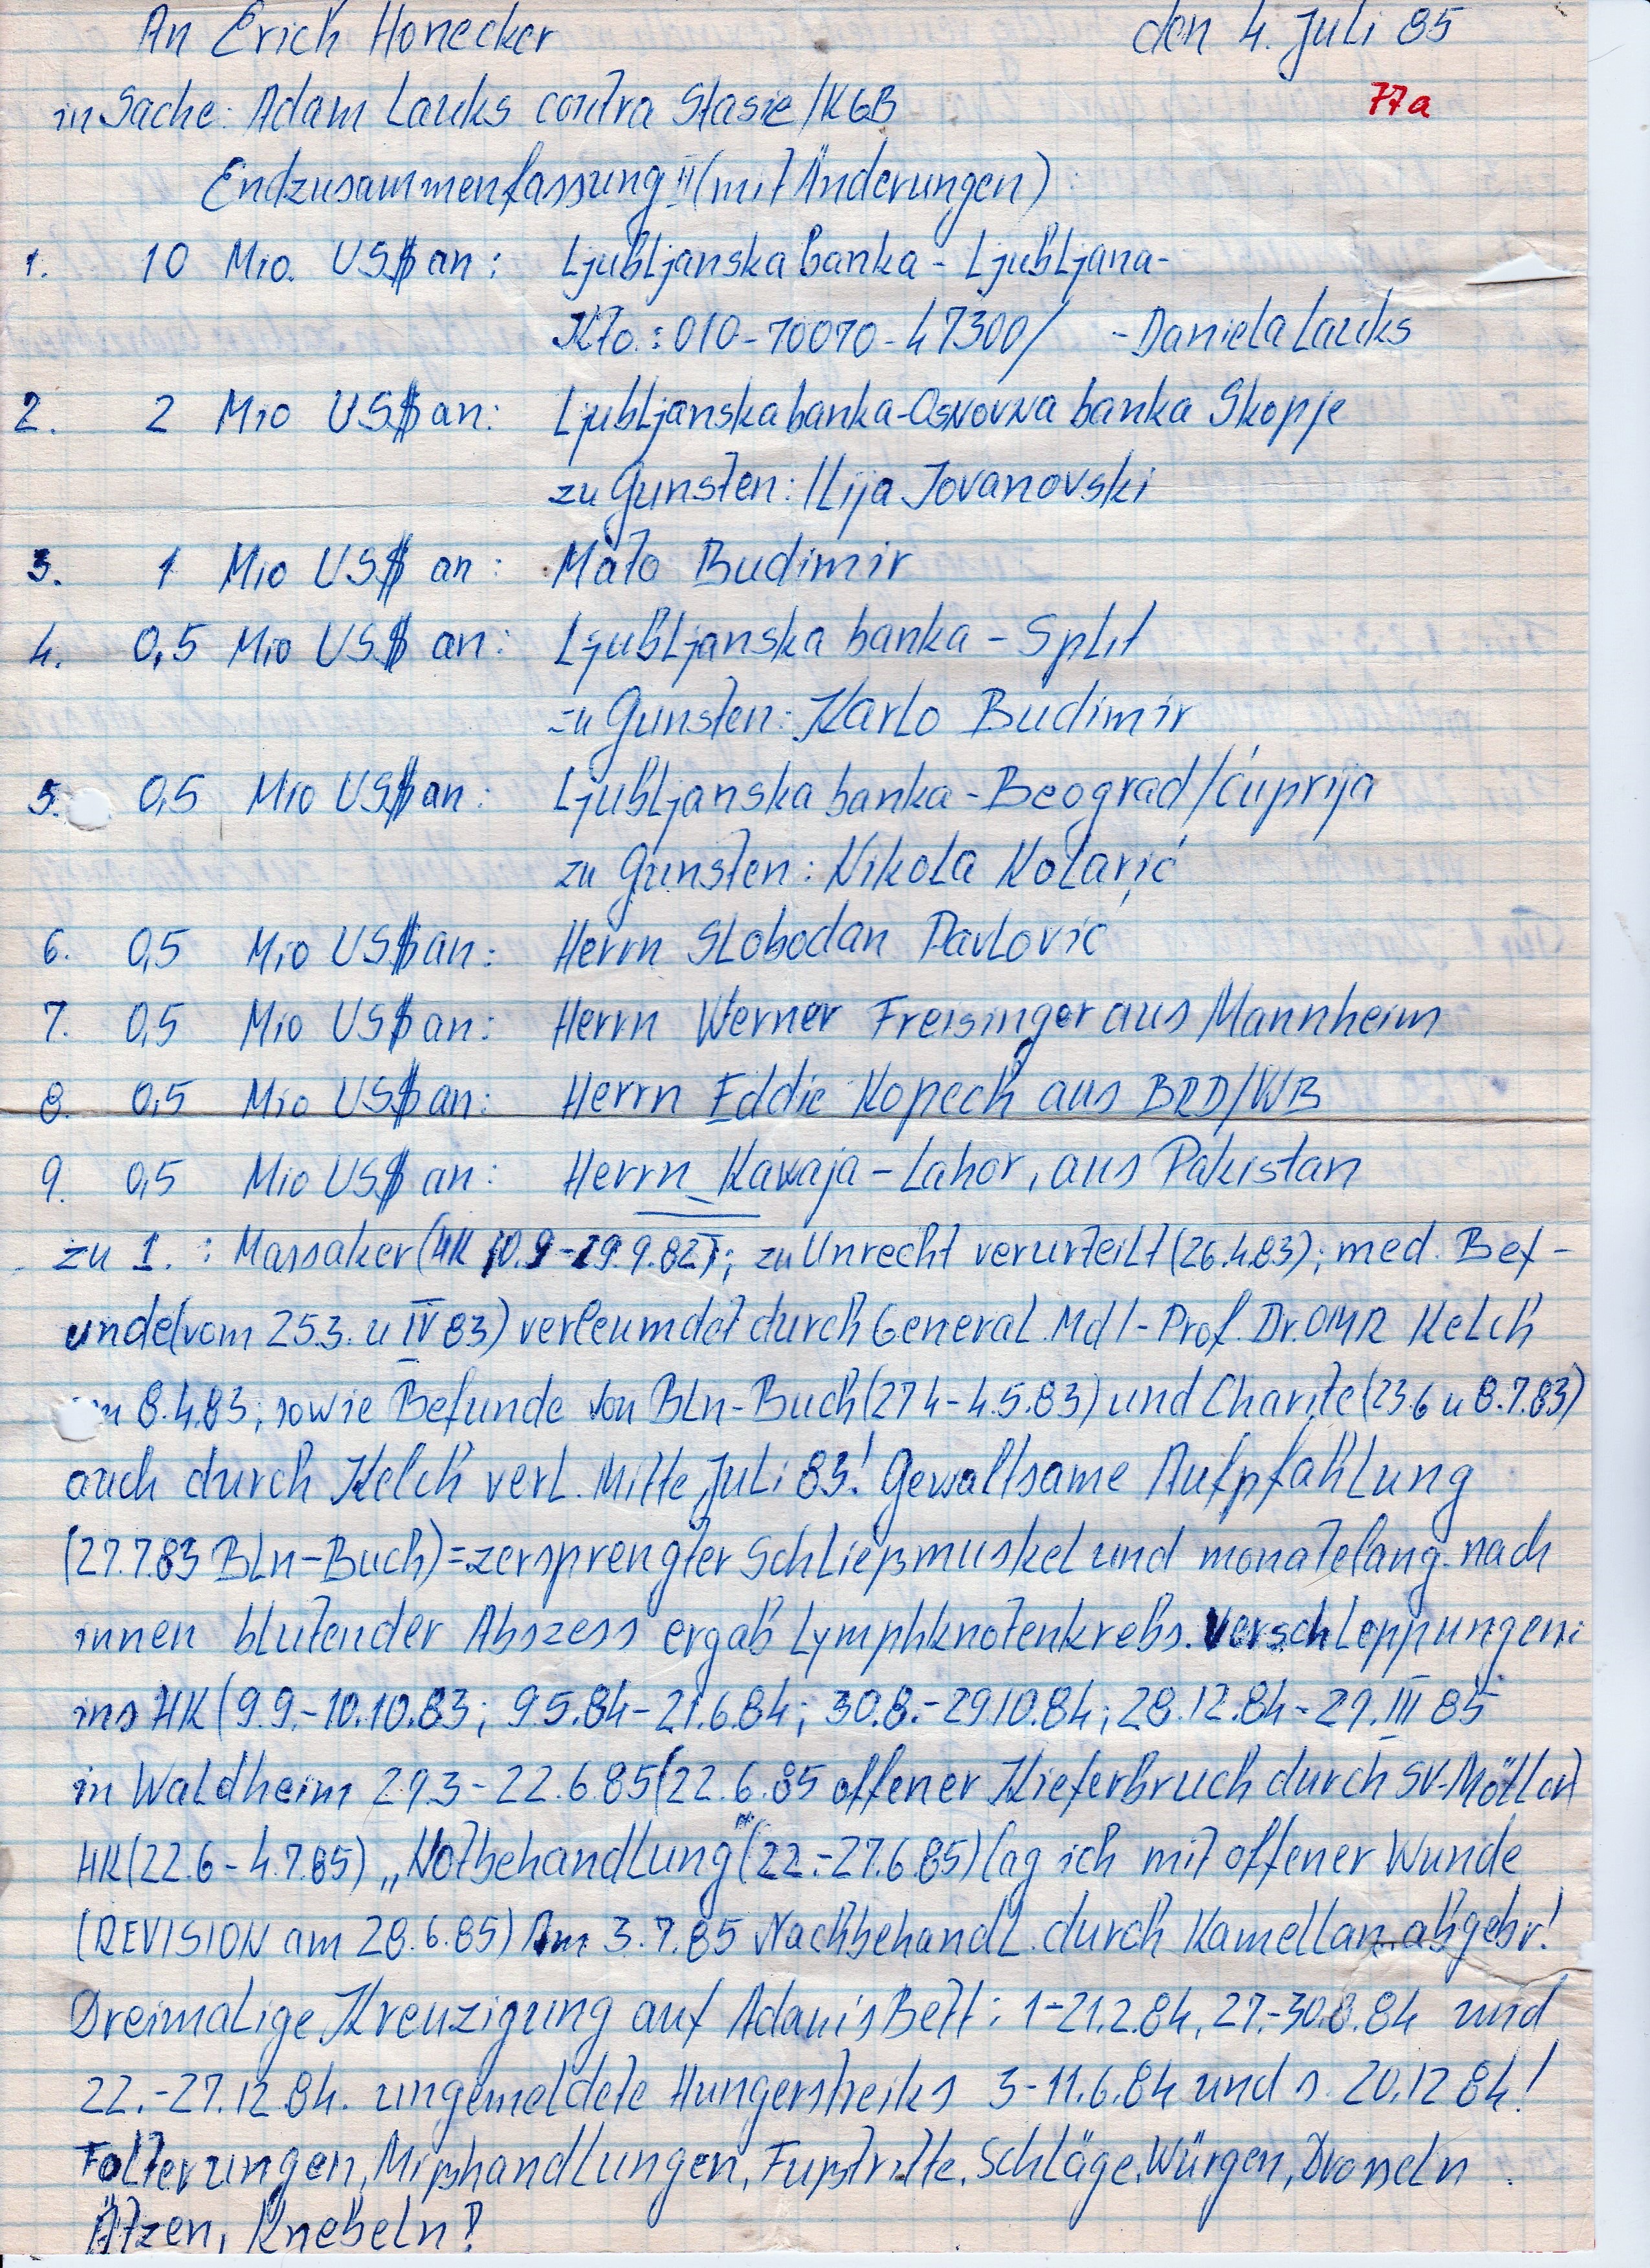 An Erich Honecker den 4. Juli 85
in Sache: Adam Lauks contra Stasie/KGB 77a
Endzusammenfassung II (mit Änderungen):
1. 10 Mio. US$ an: Ljubljanska banka - Ljubljana-
Kto.: 010-70070-47300/ -Daniela Lauks
2. 2 Mio US$ an: Ljubljanska banka-Osnovna banka Skopje
zu Gunsten: Ilija Jovanovski
3. 1 Mio US$ an: Mato Budimir
4. 0,5 Mio US$ an: Ljubljanska banka - Split
zu Gunsten: Karlo Budimir
5. 0,5 Mio US$ an: Ljubljanska banka-Beograd/Ćuprija
zu Gunsten: Nikola Kolarić
6. 0,5 Mio US$ an: Herrn Slobodan Pavlović
7. 0,5 Mio US$ an: Herrn Werner Freisinger aus Mannheim
8. 0,5 Mio US$ an: Herrn Eddie Kopech aus BRD/WB
9. 0,5 Mio US$ an: Herrn Kawaja-Lahor, aus Pakistan
zu 1. : Massaker (HK 10.9-29.9.82); zu Unrecht verurteilt (26.4.83); med. Bef-
unde (vom 25.3. u IV 83) verleumdet durch General MdI-Prof. Dr. OMR Kelch
8.4.83; sowie Befunde von Bln-Buch (27.4-4.5.83) und Charite (23.6 u 8.7.83)
auch durch Kelch verl. Mitte Juli 83! Gewaltsame Aufpfählung
(27.7.83 Bln-Buch)=zersprengter Schließmuskel und monatelang nach
innen blutender Abszess ergab Lymphknotenkrebs. Verschleppungen:
ins HK (9.9.-10.10.83; 9.5.84-21.6.84; 30.8.-29.10.84; 28.12.84-29.III 85
in Waldheim 29.3-22.6.85 (22.6.85 offener Kieferbruch durch SV-Möller)
HK (22.6-4.7.85) „Notbehandlung" (22.-27.6.85) lag ich mit offener Wunde
(REVISION am 28.6.85) Am 3.7.85 Nachbehandl. durch Kamellan abgebr!
Dreimalige Kreuzigung auf Adamis Bett: 1-21.2.84, 27.-30.8.84 und
22.-27.12.84. ungemeldete Hungerstreiks 3-11.6.84 und s. 20.12 84!
Folterungen, Mißhandlungen, Fußtritte, Schläge, Würgen, Drosseln
Ätzen, Knebeln!